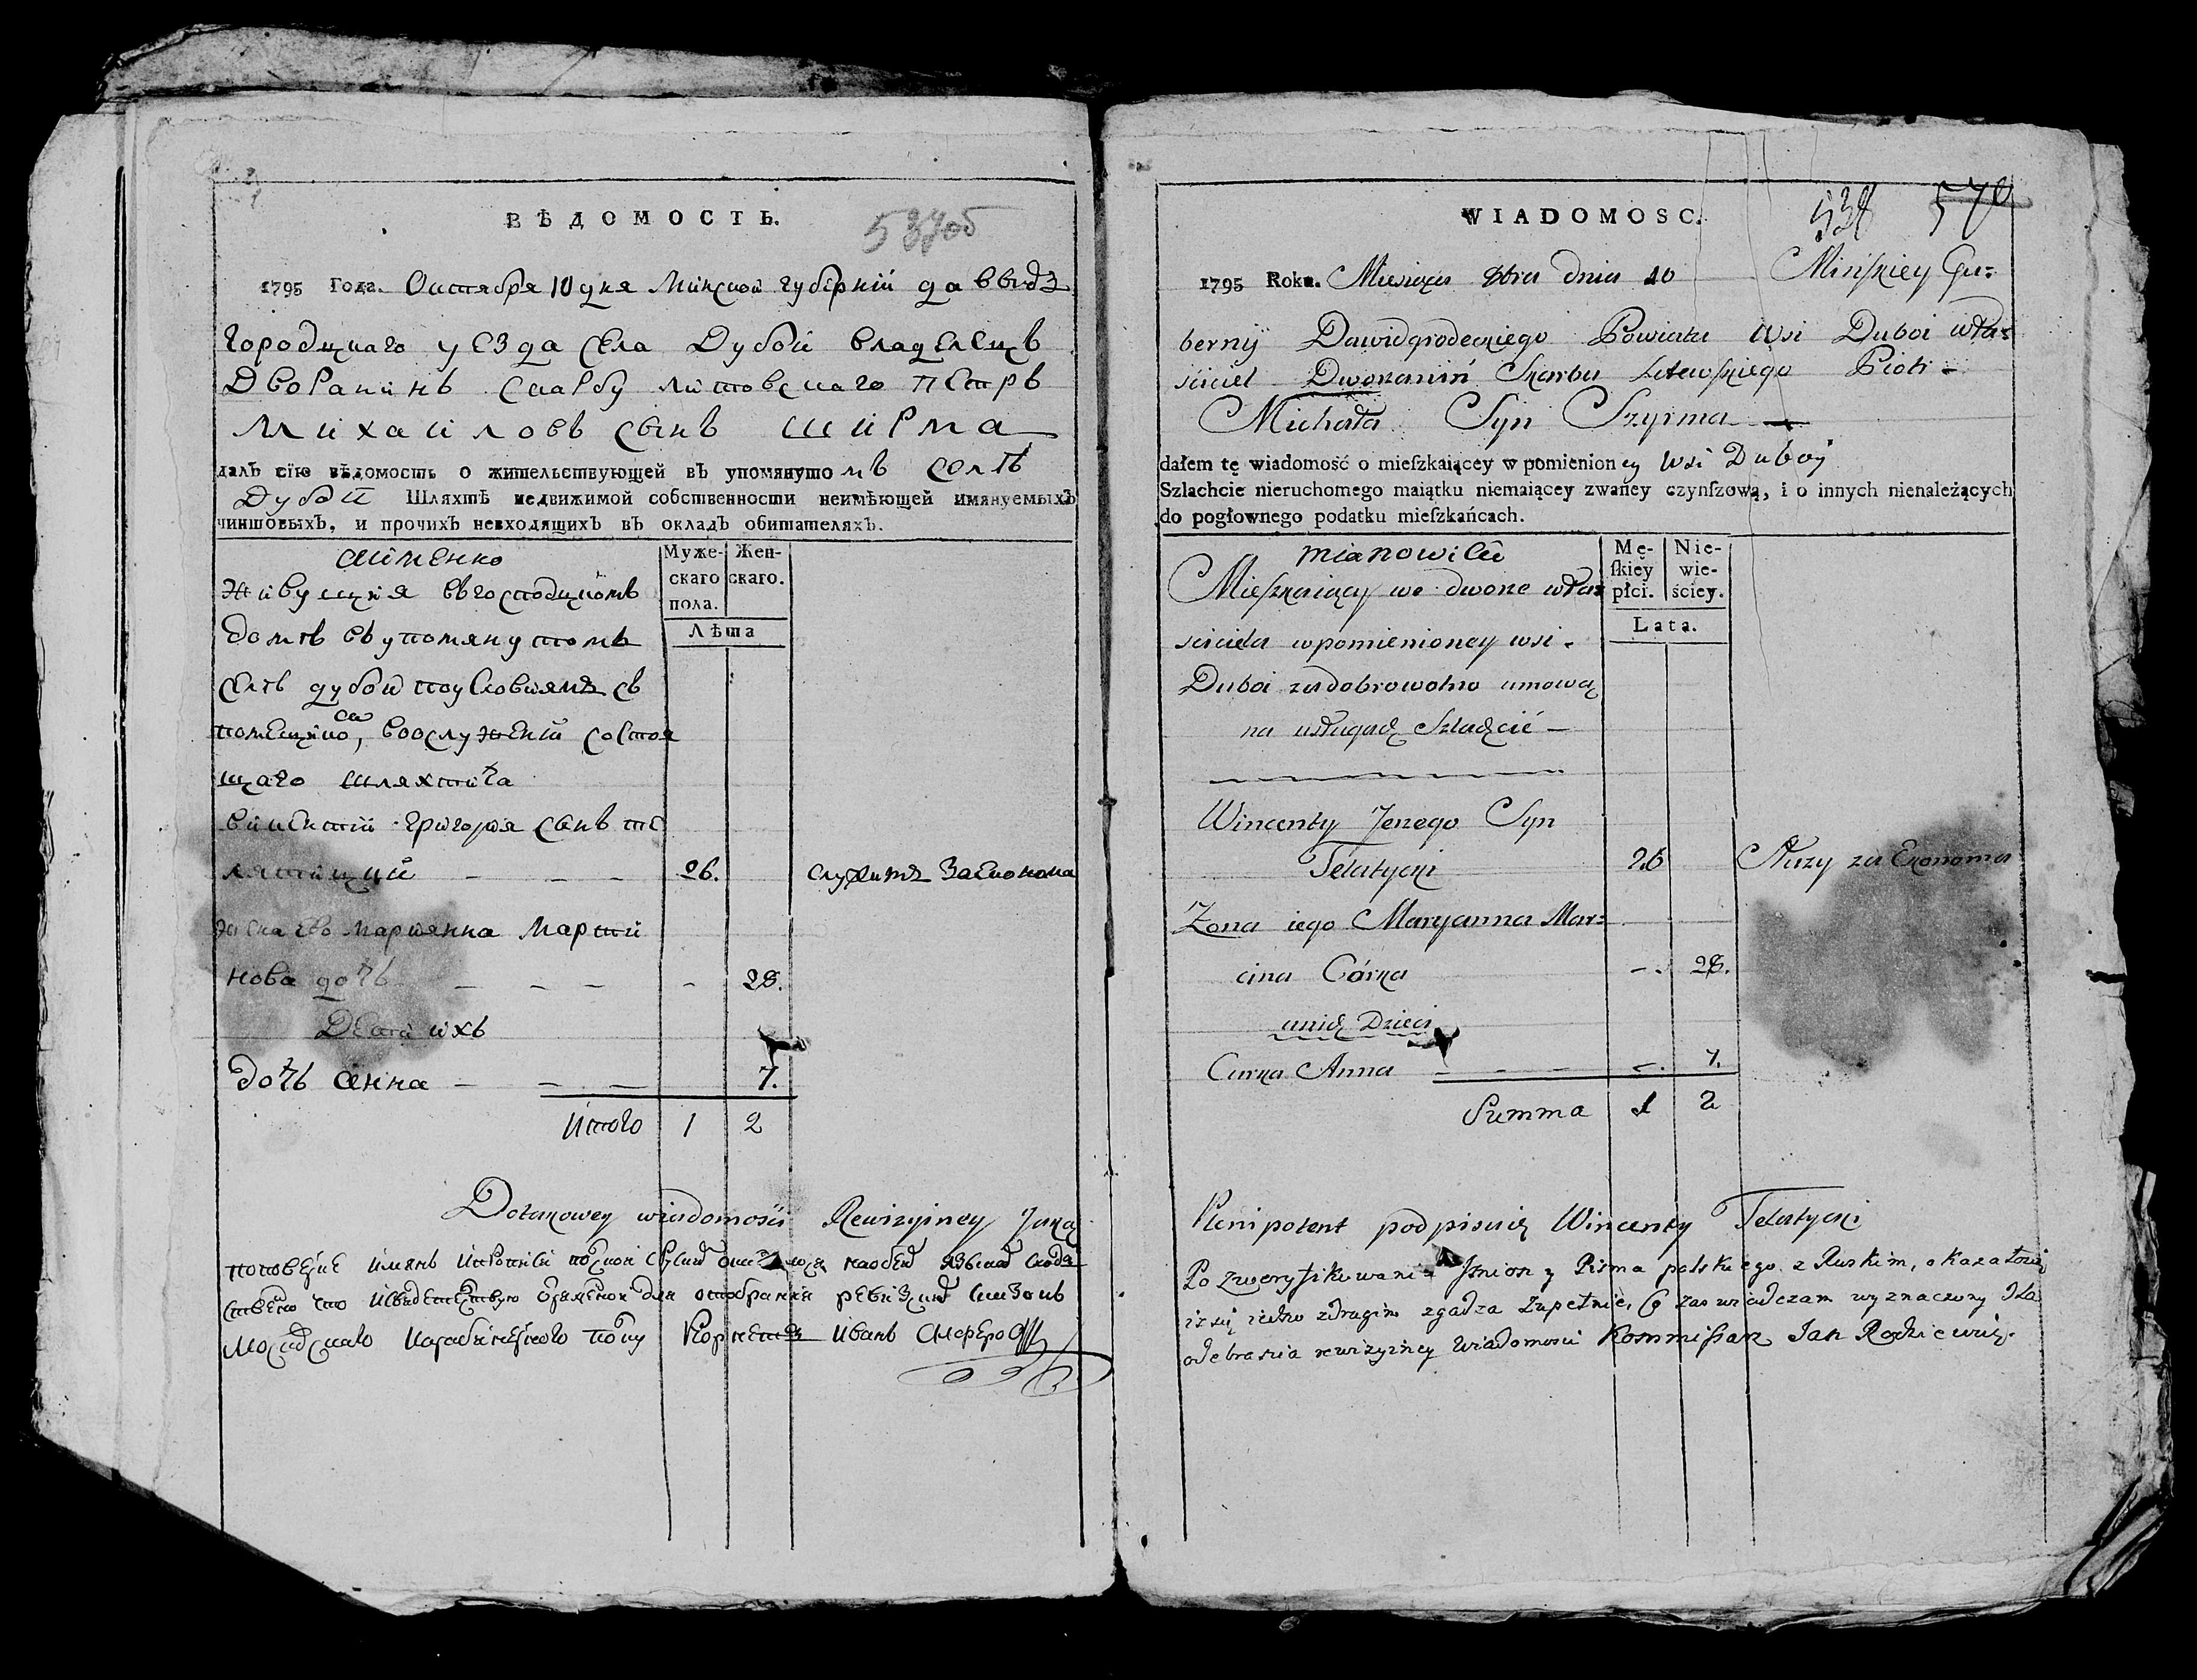 ВѢДОМОСТЬ.
537об
1795 Года. Октября 10 дня Минской губернїи давыдъ
городцкаго уезда села Дубой владелецъ
Дворанинъ скарбу литовскаго петръ
Михайловъ сынъ ширма
далъ сїю вѣдомость о жительствующей въ упомянутомъ селѣ
Дубой Шляхтѣ недвижимой собственности неимѣющей имянуемыхъ
чиншовыхъ, и прочихъ невходящихъ въ окладъ обитателяхъ.
аименно
Муже- Жен-
скаго скаго.
пола.
Лѣта
живущия въ господцкомъ
домѣ въ упомянутомъ
селѣ дубой по условиямъ съ
помещико, вослужении состоя
щаго шляхтича
викентий григорья сынъ те
лятицкий — — — 26. служитъ за економа
жена его марианна марти
нова дочь — — — - 28.
Дети ихъ
дочь анна — — — 7.
Итого 1 2
Do takowey wiadomości Rewizyiney Jako
WIADOMOSC.
538 570
1795 Roku. Miesiąca 8bra dnia 10 Minſkiey Gu=
bernij Dawidgrodeckiego Powiatu Wsi Duboi wła=
ściciel Dworzanin Skarbu Litewſkiego Piotr
Michała Syn Szyrma
dałem tę wiadomość o mieſzkaiącey w pomienioney Wsi Duboy
Szlachcie nieruchomego maiątku niemaiącey zwaney czynſzową, i o innych nienależących
do pogłownego podatku mieſzkańcach.
mianowicie
Mę- Nie-
ſkiey wie-
płci. ściey.
Lata.
Mieſzkaiący we dworze wła=
ściciela w pomienioney wsi
Duboi za dobrowolną umową
na usługach Szlachcic —
Wincenty Jerzego Syn
Telatycki 26 Służy za Ekonoma
Żona iego Maryanna Mar=
cina Córka — 28.
u nich Dzieci
Curka Anna — — — —. 7.
Summa 1 2
Plenipotent podpisuię Wincenty Telatycki
Po zweryfikowaniu Pisma polskiego z Ruskim, okazało się
iż się iedno z drugim zgadza zupełnie, Co zaswiadczam wyznaczony Dla
odebrania rewizyiney Wiadomosci Kommiſsarz Jan Rodziewicz.